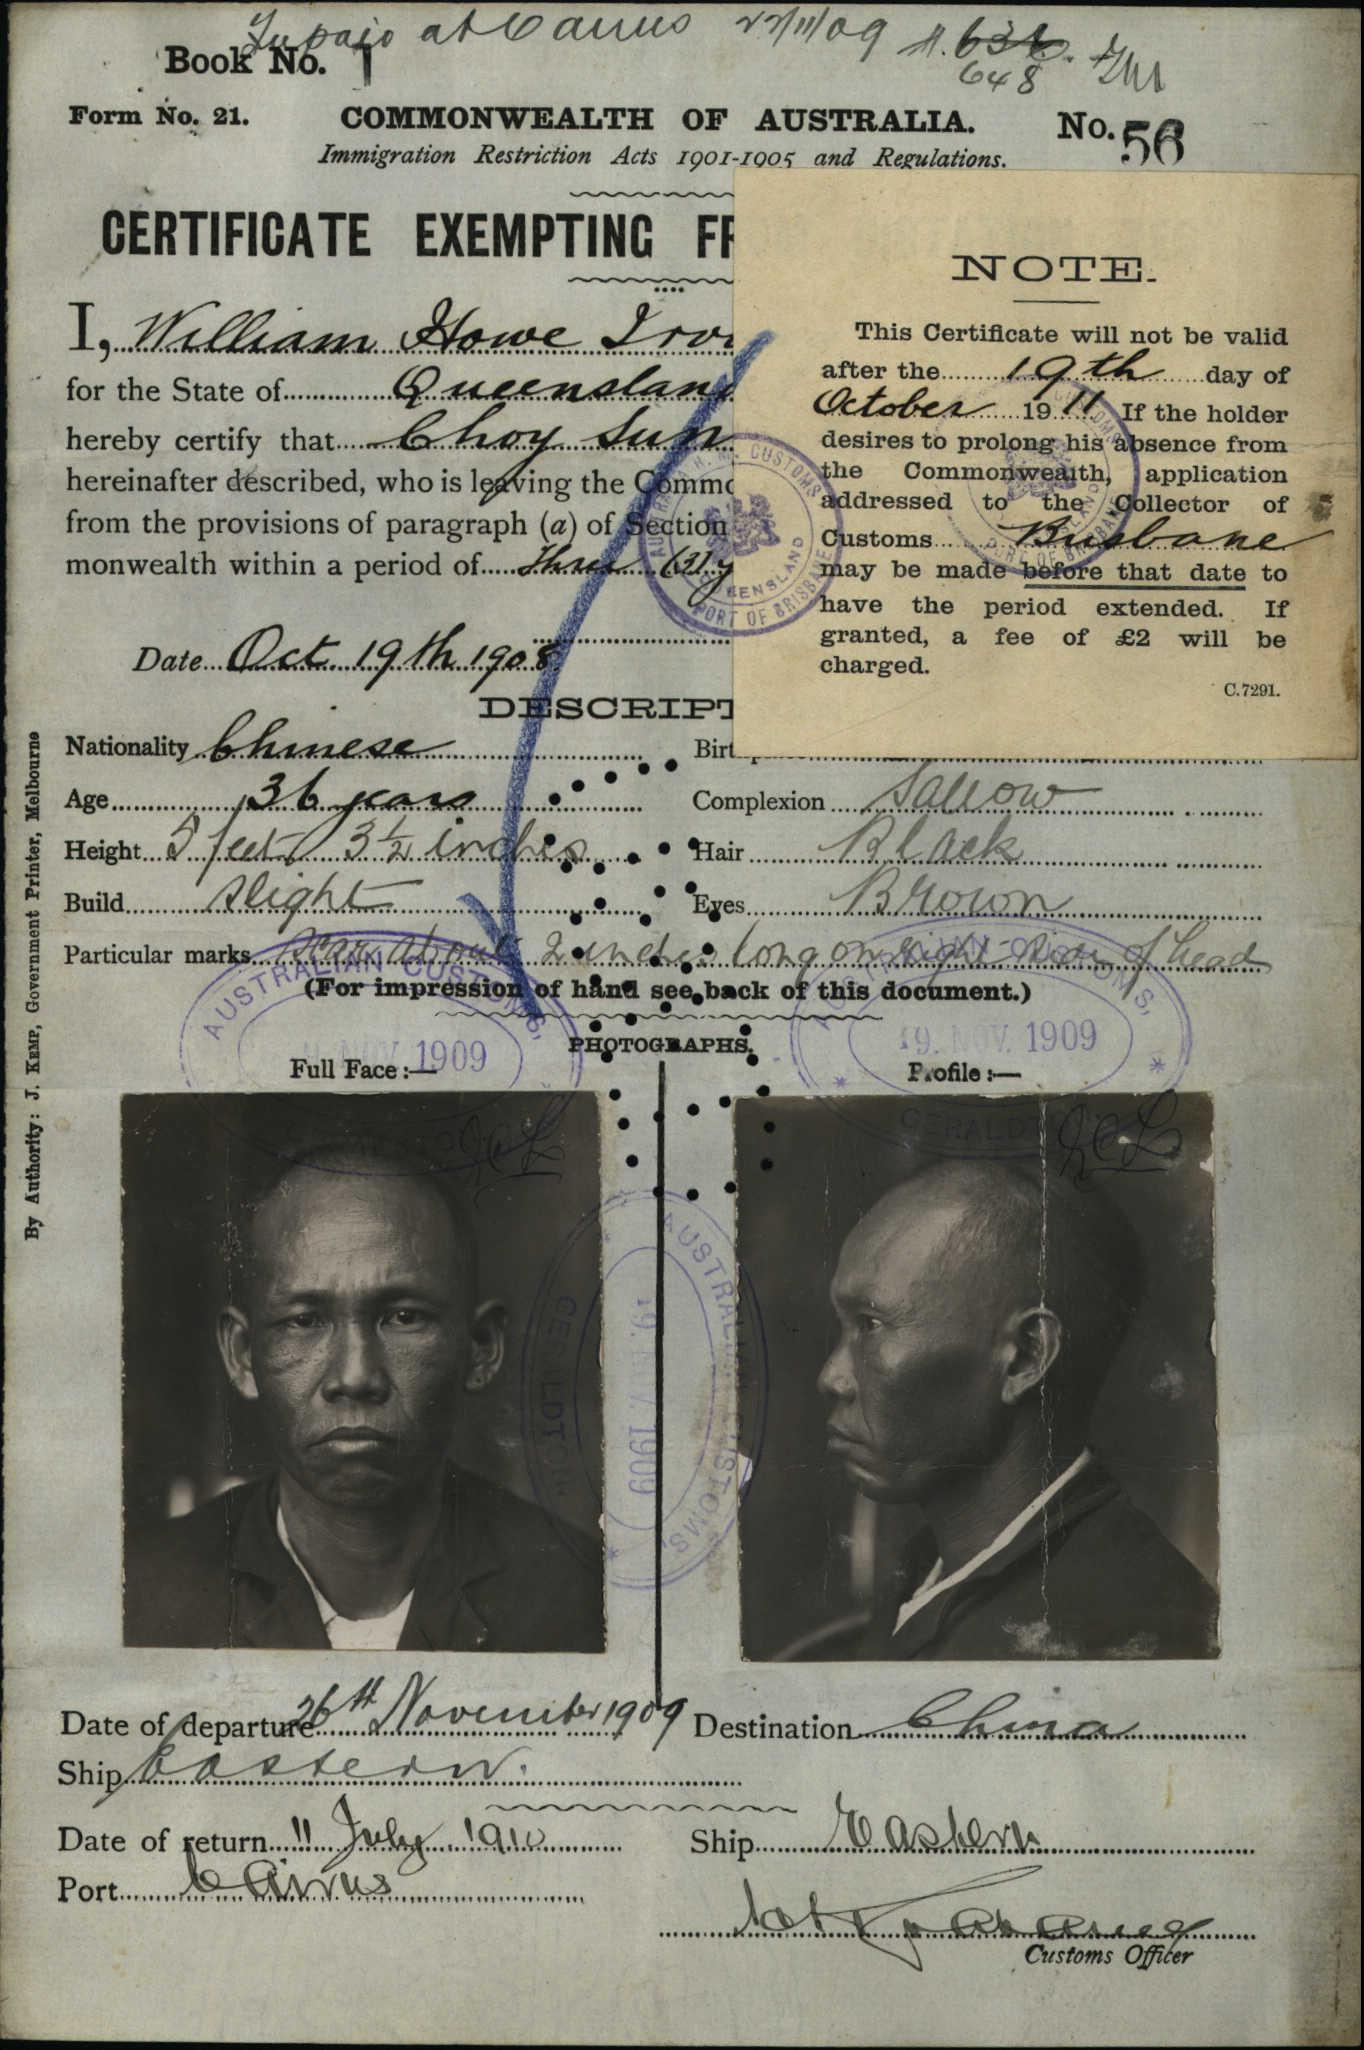 at Cairns 22/11/09
Book No. 1
648
Form No. 21. COMMONWEALTH OF AUSTRALIA. No. 56
Immigration Restriction Acts 1901-1905 and Regulations.
CERTIFICATE EXEMPTING
I, William Howe
for the State of Queensland
hereby certify that Choy Sun
hereinafter described, who is leaving the
from the provisions of paragraph (a) of Section
monwealth within a period of Three (3)
Date Oct 19th 1908
NOTE.
This Certificate will not be valid
after the 19th day of
October 1911 If the holder
desires to prolong his absence from
the Commonwealth, application
addressed to the Collector of
Customs Brisbane
may be made before that date to
have the period extended. If
granted, a fee of £2 will be
charged.
C.7291.
H.M. CUSTOMS
QUEENSLAND
PORT OF BRISBANE
Nationality Chinese
Age 36 years Complexion Sallow
Height 5 feet 3½ inches Hair Black
Build Slight Eyes Brown
Particular marks Scar about 2 inches long on right side of head
(For impression of hand see back of this document.)
PHOTOGRAPHS.
Full Face:— Profile:—
AUSTRALIAN CUSTOMS,
NOV. 1909
AUSTRALIAN CUSTOMS,
19. NOV. 1909
AUSTRALIAN CUSTOMS,
19. NOV. 1909
By Authority: J. KEMP, Government Printer, Melbourne
Date of departure 26th November 1909 Destination China
Ship Eastern.
Date of return 11 July 1910 Ship Eastern
Port Cairns
Customs Officer